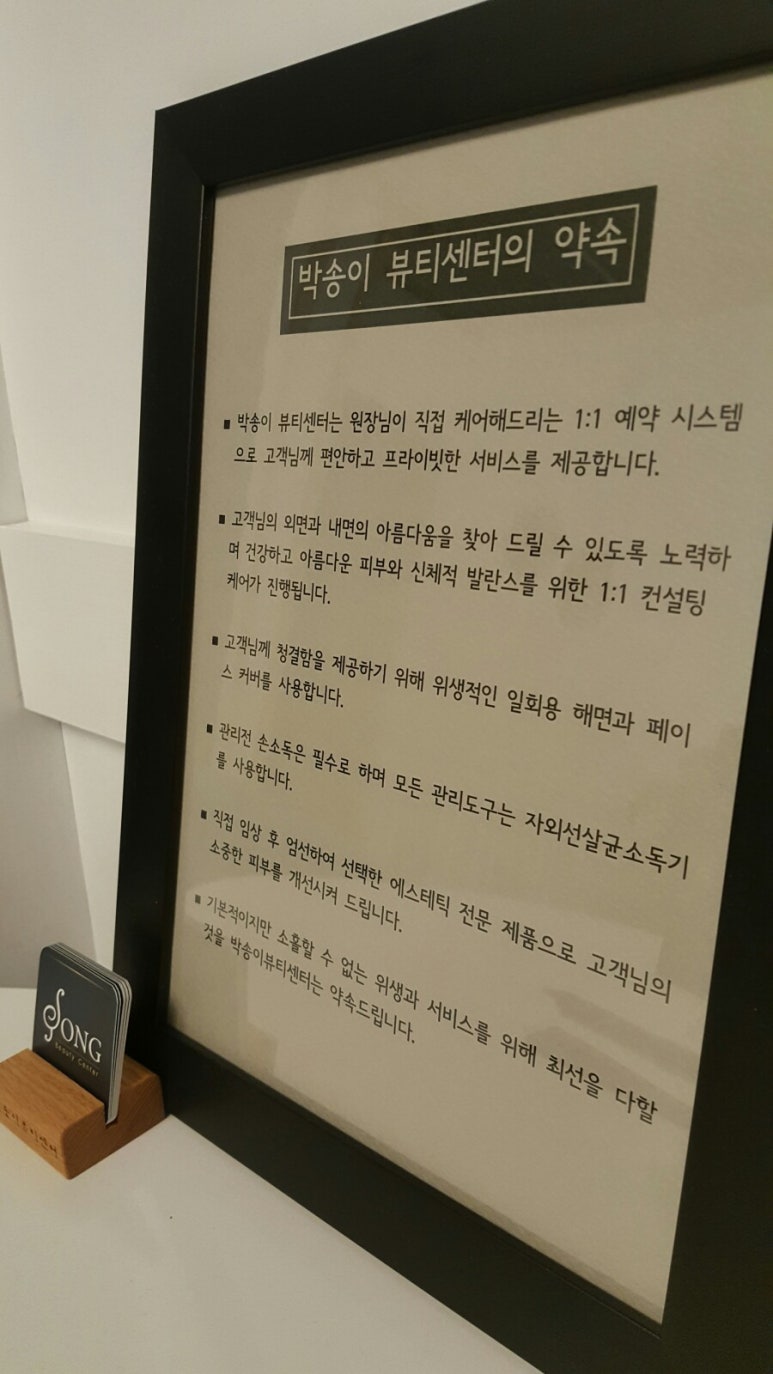 박송이 뷰티센터의 약속
▪ 박송이 뷰티센터는 원장님이 직접 케어해드리는 1:1 예약 시스템
으로 고객님께 편안하고 프라이빗한 서비스를 제공합니다.
▪ 고객님의 외면과 내면의 아름다움을 찾아 드릴 수 있도록 노력하
며 건강하고 아름다운 피부와 신체적 발란스를 위한 1:1 컨설팅
케어가 진행됩니다.
▪ 고객님께 청결함을 제공하기 위해 위생적인 일회용 해면과 페이
스 커버를 사용합니다.
▪ 관리전 손소독은 필수로 하며 모든 관리도구는 자외선살균소독기
를 사용합니다.
▪ 직접 임상 후 엄선하여 선택한 에스테틱 전문 제품으로 고객님의
소중한 피부를 개선시켜 드립니다.
▪ 기본적이지만 소홀할 수 없는 위생과 서비스를 위해 최선을 다할
것을 박송이뷰티센터는 약속드립니다.
SONG
Beauty Center